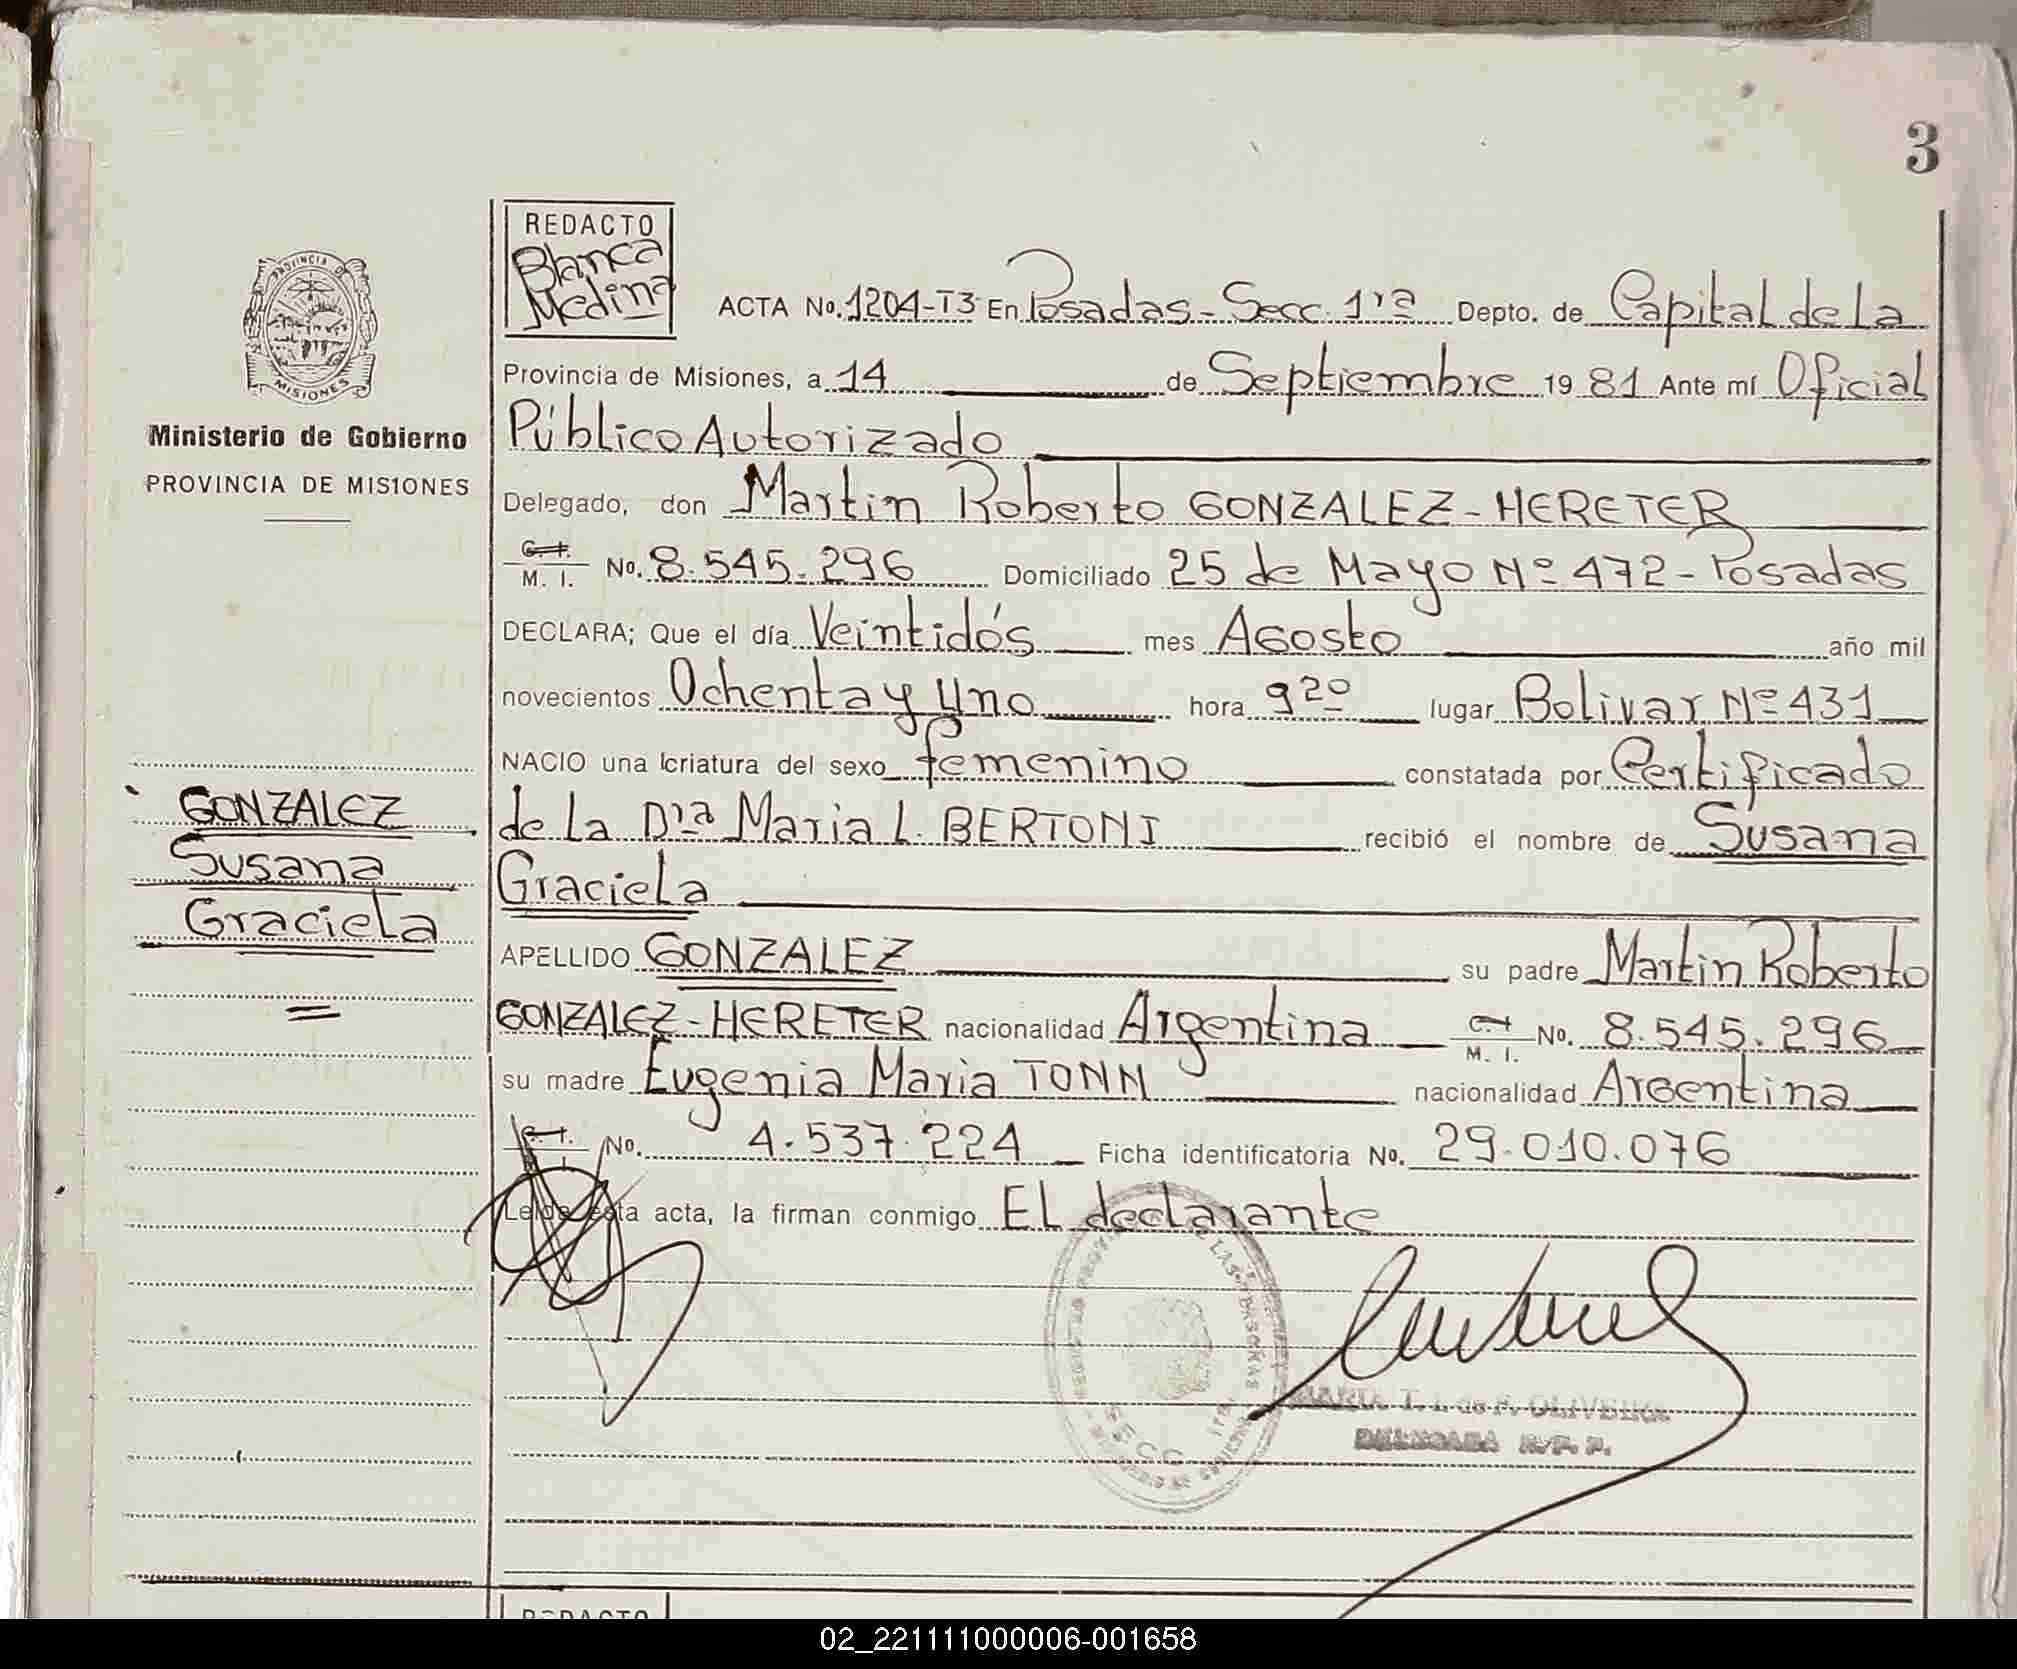 3
REDACTO
Blanca
Medina
PROVINCIA DE
MISIONES
Ministerio de Gobierno
PROVINCIA DE MISIONES
ACTA No. 1204-T3 En Posadas - Secc. 1ra Depto. de Capital de la
Provincia de Misiones, a 14 de Septiembre 19 81 Ante mí Oficial
Público Autorizado
Delegado, don Martin Roberto GONZALEZ-HERETER
C. I. M. I. No. 8.545.296 Domiciliado 25 de Mayo Nº 472 - Posadas
DECLARA; Que el día Veintidós mes Agosto año mil
novecientos Ochenta y Uno hora 9 20 lugar Bolivar Nº 431
NACIO una criatura del sexo femenino constatada por Certificado
de la Dra Maria L. BERTONI recibió el nombre de Susana
Graciela
APELLIDO GONZALEZ su padre Martin Roberto
GONZALEZ-HERETER nacionalidad Argentina C. I. M. I. No. 8.545.296
su madre Eugenia Maria TONN nacionalidad Argentina
C. I. No. 4.537.224 Ficha identificatoria No. 29.010.076
Leída esta acta, la firman conmigo El declarante
GONZALEZ
Susana
Graciela
=
SECC. 1ra
MARIA T. I. de P. OLIVEIRA
DELEGADA R. P. P.
REDACTO
02_221111000006-001658